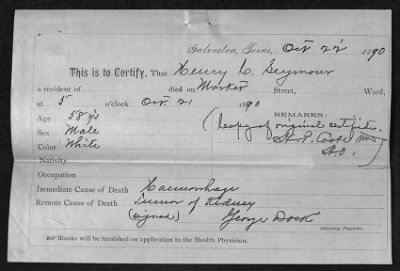 Galveston, Texas, Oct 22 1890
This is to Certify, That Henry C. Seymour
a resident of died on Market Street, Ward,
at 5 o'clock Oct. 21 1890
Age 58 y's
REMARKS:
Sex Male
(Copy of original certificate.
Color White
H. P. Cooke MD
H.O.)
Nativity
Occupation
Immediate Cause of Death Haemorrhage
Remote Cause of Death Tumor of Kidney
(signed) George Dock
Attending Physician.
Blanks will be furnished on application to the Health Physician.